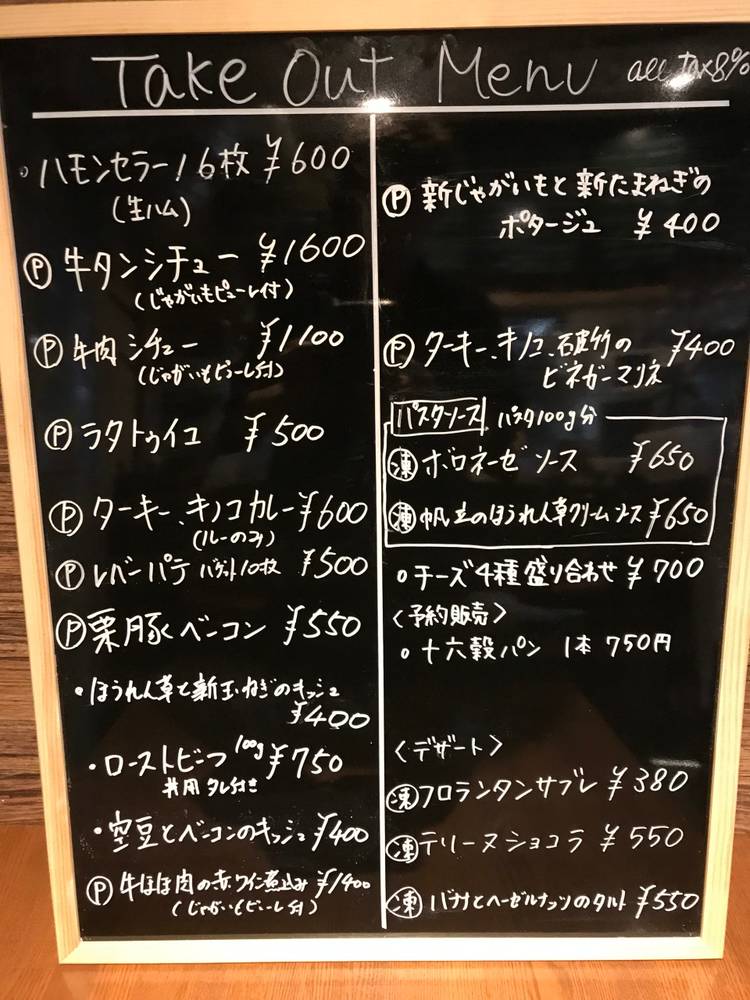 Take Out Menu all tax8%
・ハモンセラーノ6枚 ¥600
(生ハム)
Ⓟ牛タンシチュー ¥1600
(じゃがいもピューレ付)
Ⓟ牛肉シチュー ¥1100
(じゃがいもピューレ付)
Ⓟラタトゥイユ ¥500
Ⓟターキー、キノコカレー ¥600
(ルーのみ)
Ⓟレバーパテ バゲット10枚 ¥500
Ⓟ栗豚ベーコン ¥550
・ほうれん草と新玉ねぎのキッシュ
¥400
・ローストビーフ 100g ¥750
丼用タレ付き
・空豆とベーコンのキッシュ ¥400
Ⓟ牛ほほ肉の赤ワイン煮込み ¥1400
(じゃがいもピューレ付)
Ⓟ新じゃがいもと新たまねぎの
ポタージュ ¥400
Ⓟターキー、キノコ、破竹の ¥400
ビネガーマリネ
パスタソース パスタ100g分
凍ボロネーゼソース ¥650
凍帆立のほうれん草クリームソース ¥650
・チーズ4種盛り合わせ ¥700
〈予約販売〉
・十六穀パン 1本 750円
〈デザート〉
凍フロランタンサブレ ¥380
凍テリーヌショコラ ¥550
凍バナナとヘーゼルナッツのタルト ¥550